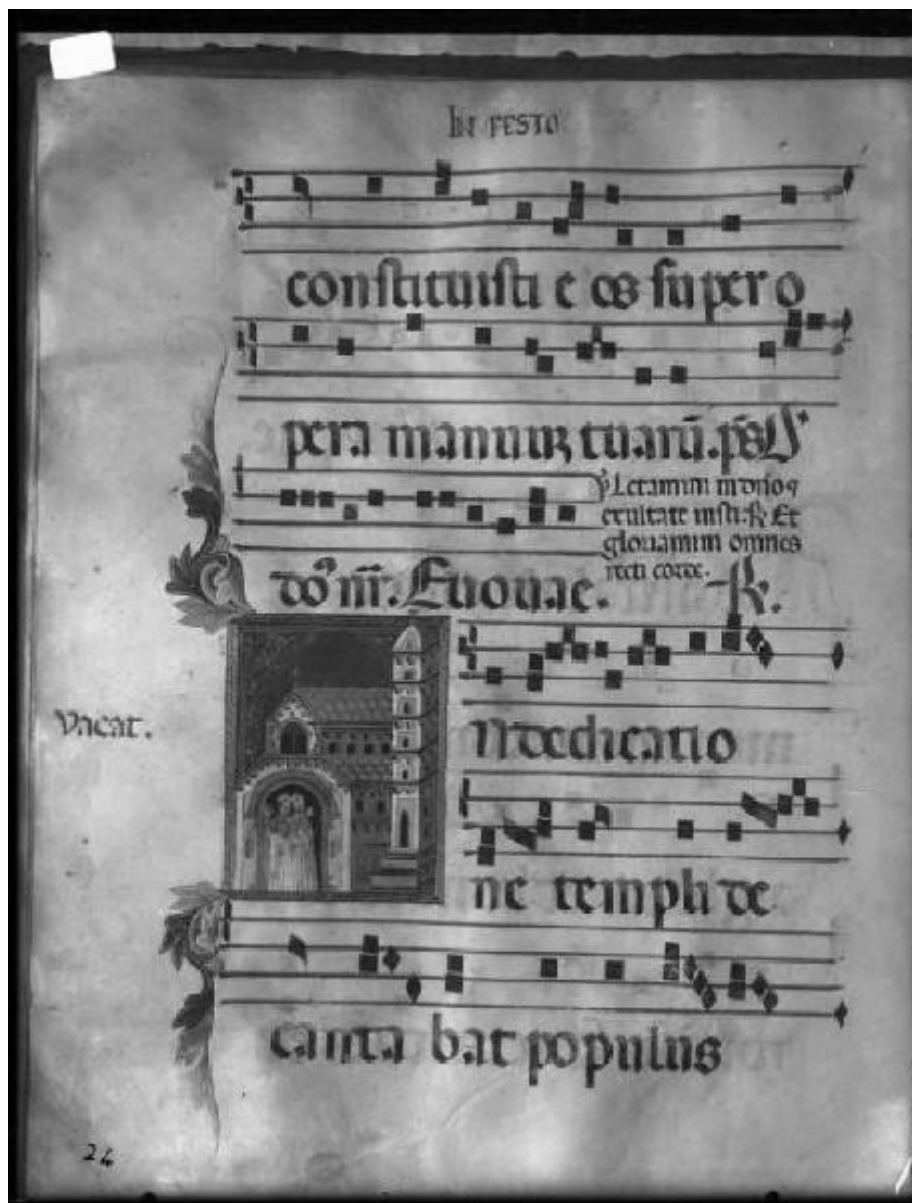 IN FESTO
constituisti e os super o
pera manuuꝝ tuaꝝ. ps
Letamini in dno ⁊
exultate iusti. ℟ Et
gloriamini omnes
recti corde.
Euouae. ℟.
Vacat.
N dedicatio
ne templi de
canta bat populus
24